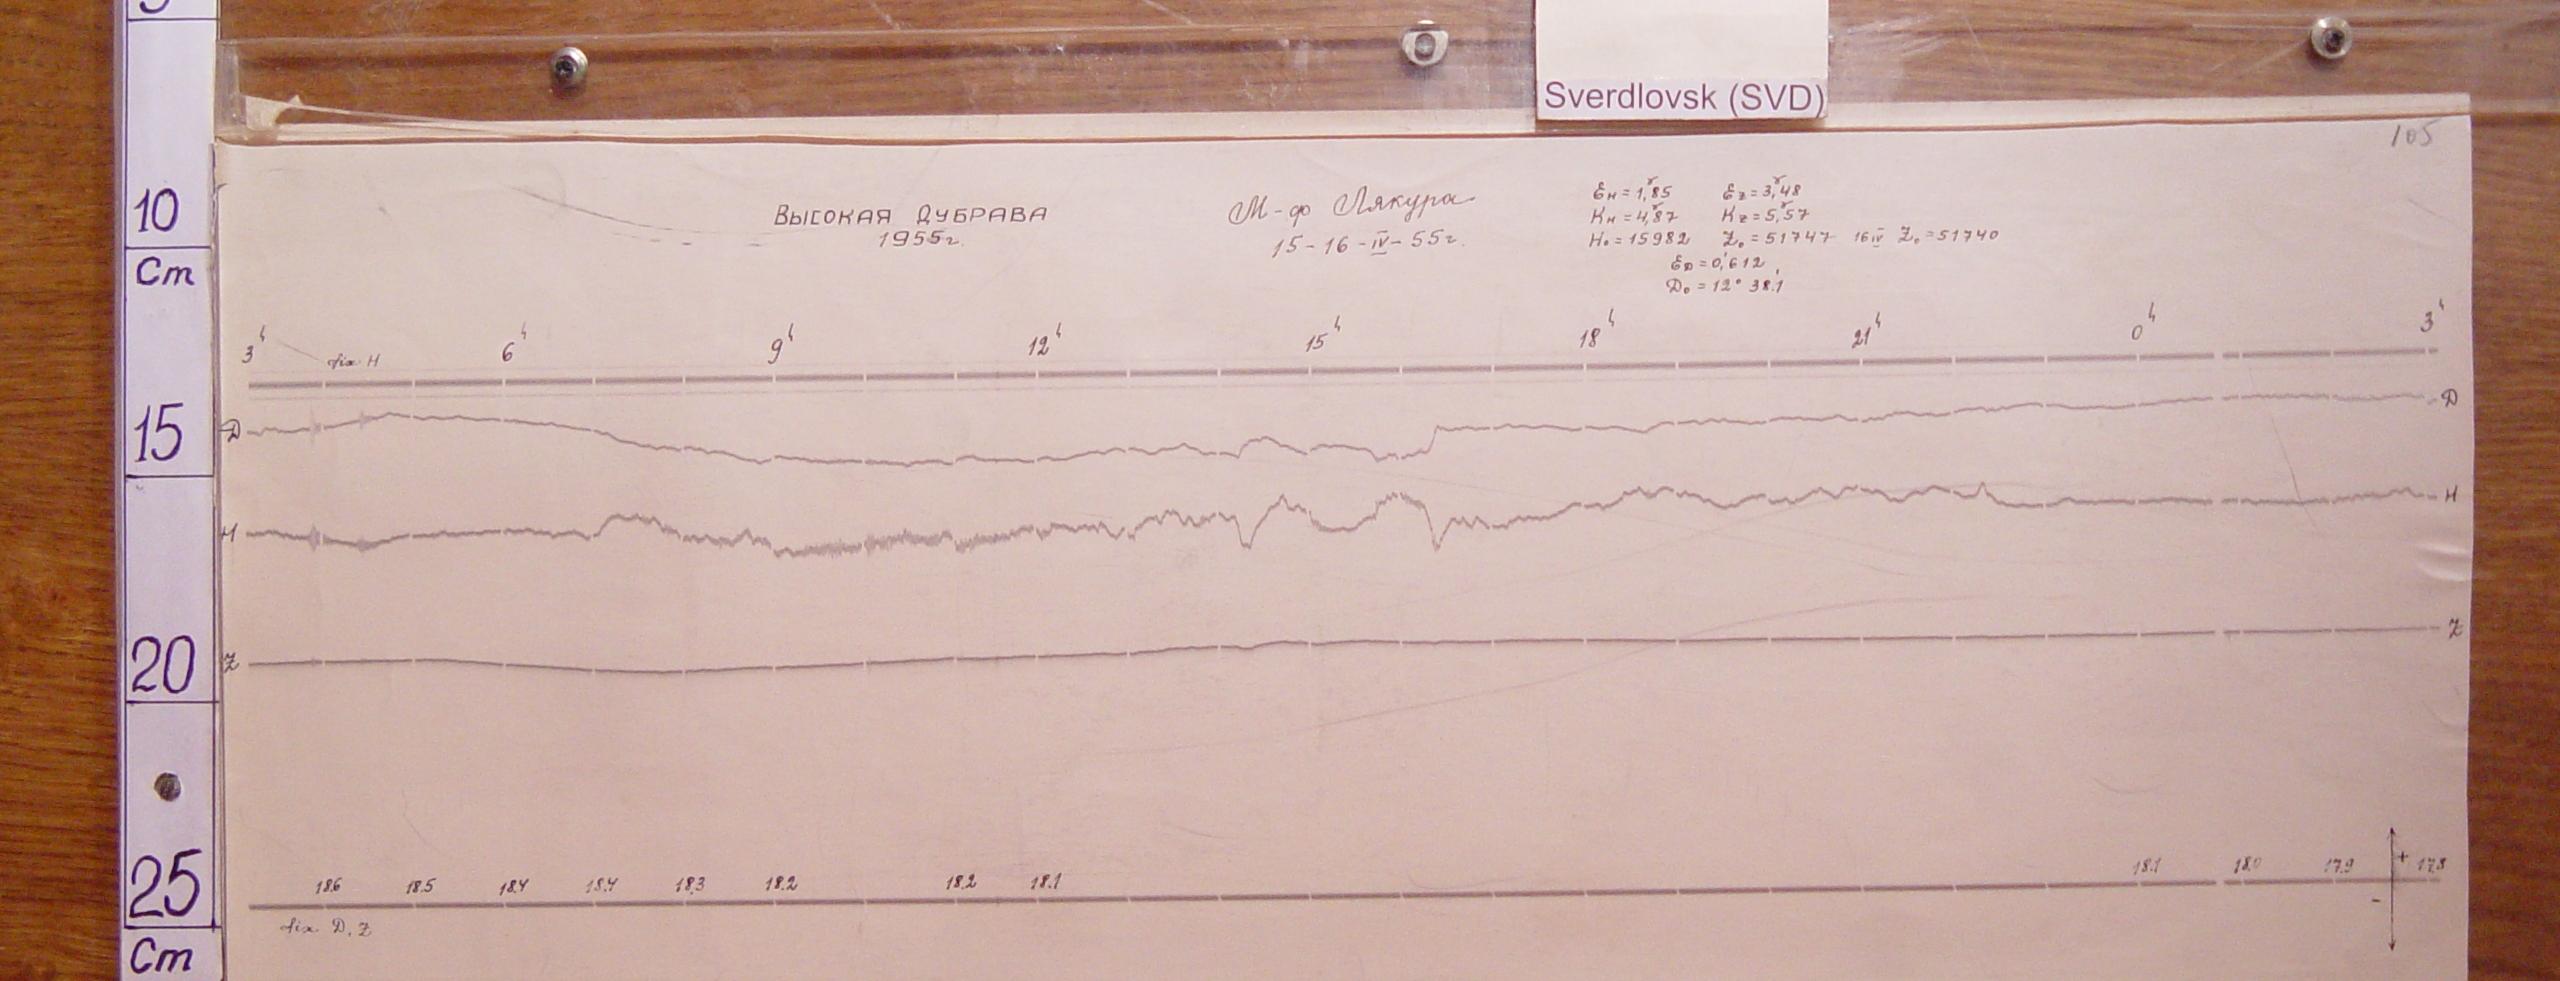 Sverdlovsk (SVD)
105
10
Cm
15
20
25
Cm
Высокая Дубрава
1955г.
М-ф Лякура
15-16-IV-55г.
Ɛн=1,γ85 Ɛz=3,γ48
Kн=4,γ87 Kz=5,γ57
H₀=15982 Z₀=51747 16 IV Z₀=51740
ƐD=0,′612
D₀=12° 38.′1
3ʰ 6ʰ 9ʰ 12ʰ 15ʰ 18ʰ 21ʰ 0ʰ 3ʰ
fix H
D D
H H
Z Z
18.6 18.5 18.4 18.4 18.3 18.2 18.2 18.1 18.1 18.0 17.9 + 17.8
-
fix D, Z